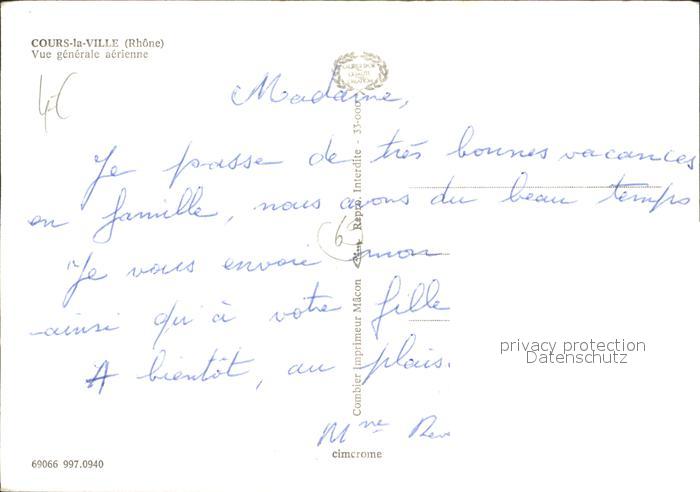 COURS-la-VILLE (Rhône)
Vue générale aérienne
4€
Madame,
Je passe de très bonnes vacances
en famille, nous avons du beau temps
Je vous envoie mon
ainsi qu'à votre fille
A bientôt, au plais.
Mme
6
Combier Imprimeur Mâcon Repro. Interdite - 35-000
privacy protection
Datenschutz
cimcrome
69066 997.0940